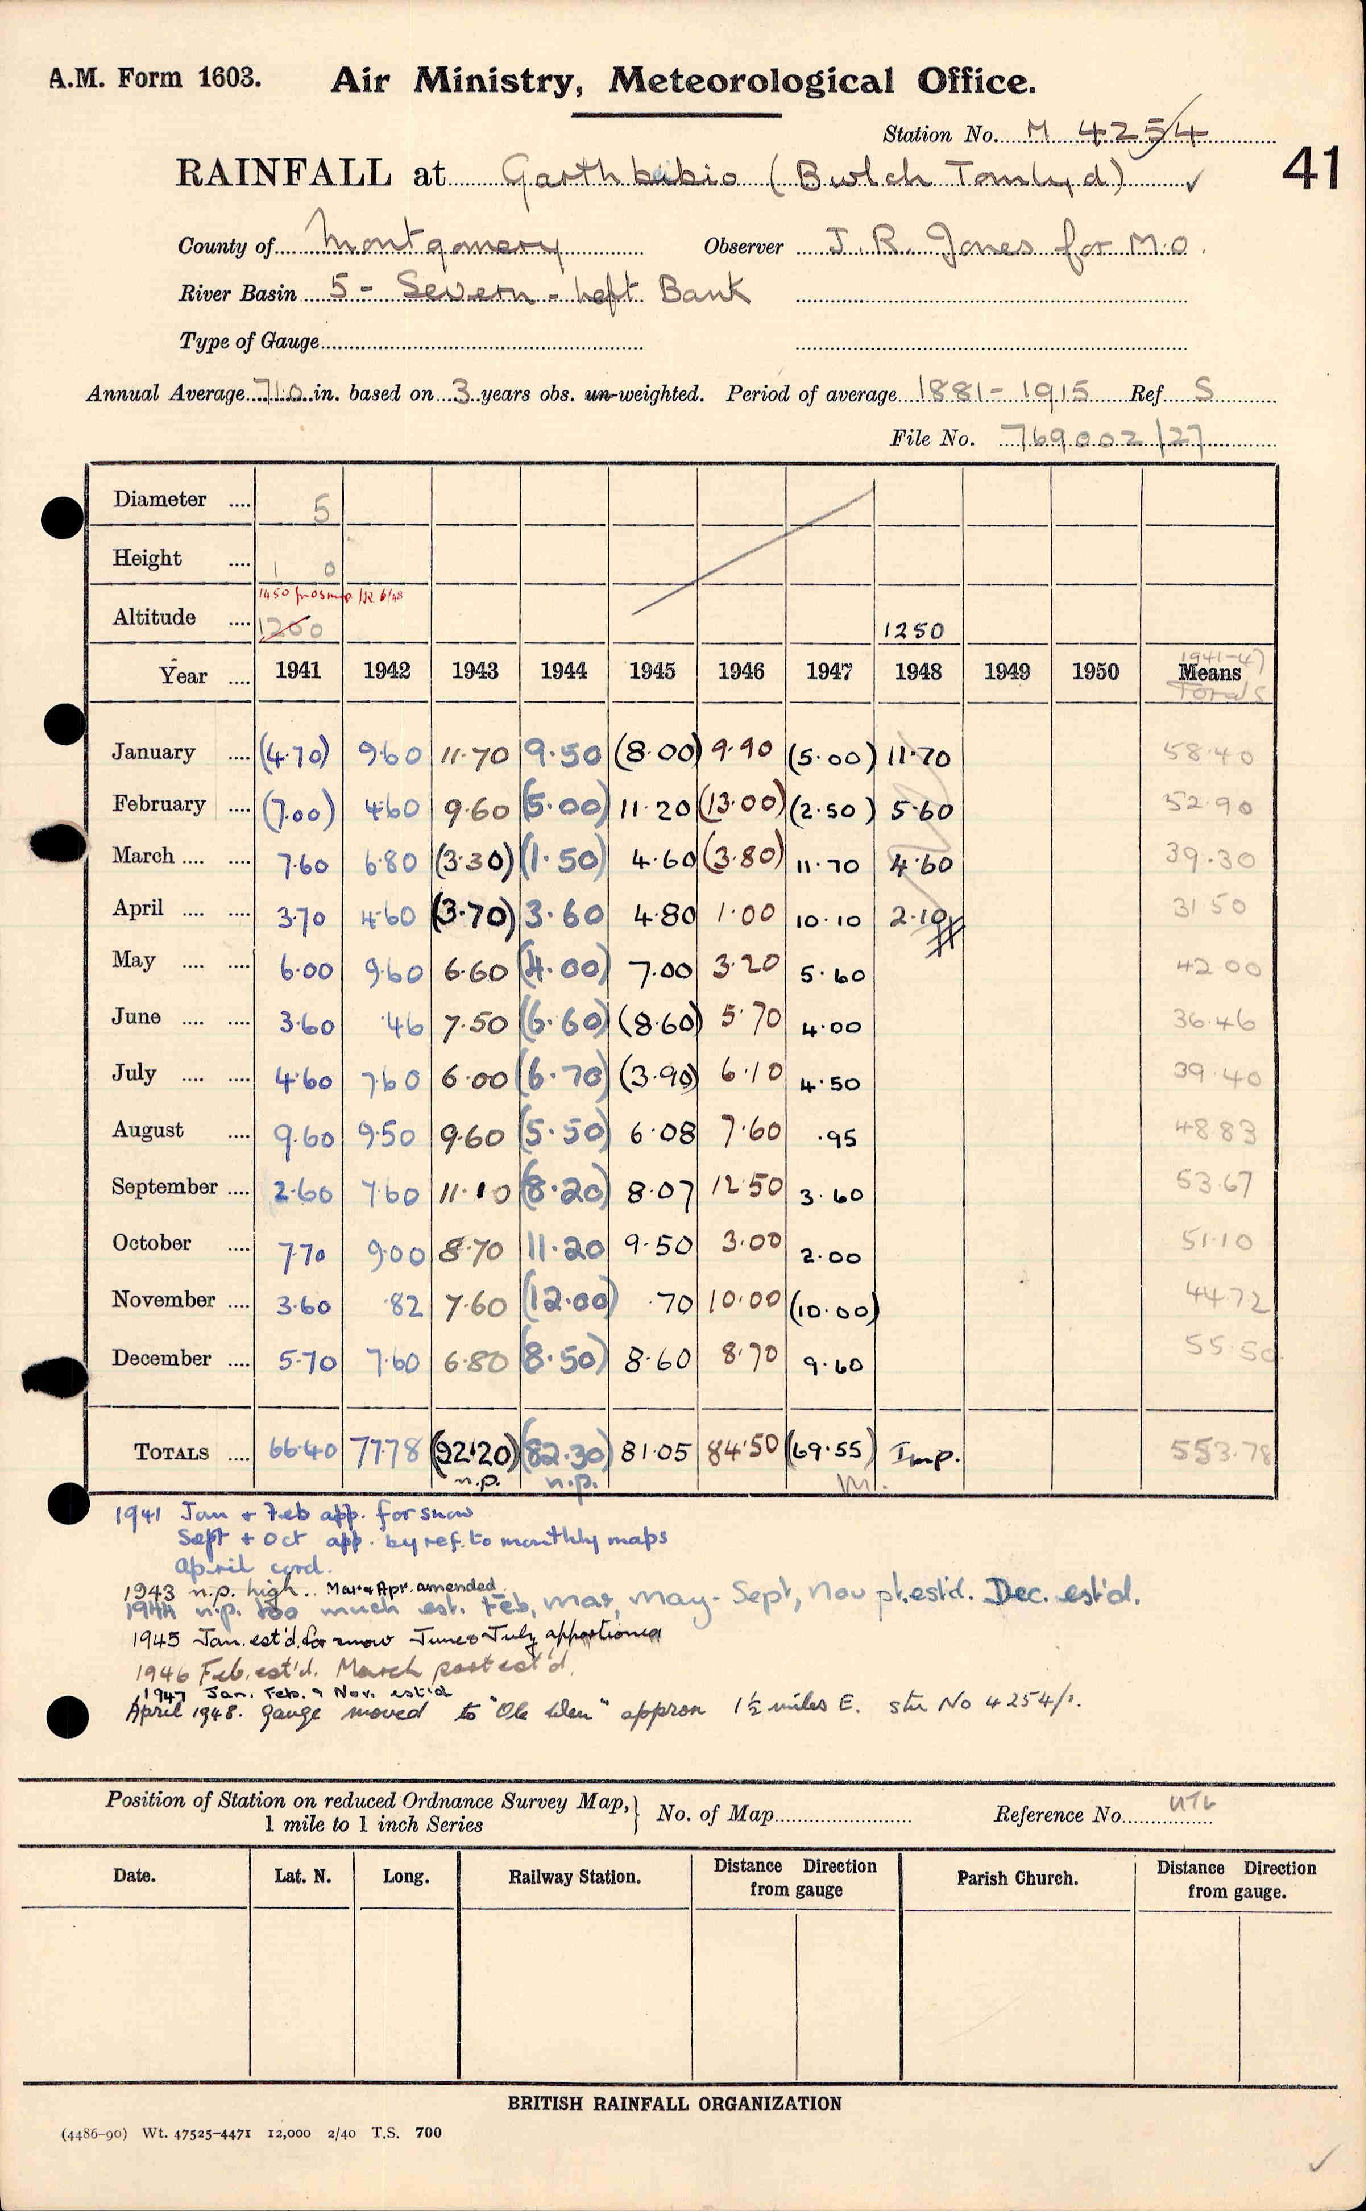 A.M. Form 1603. Air Ministry, Meteorological Office.
Station No. M 4254
41
RAINFALL at Garthbibio (Bwlch Tomlyd) ✓
County of Montgomery Observer J. R. Jones for M.O.
River Basin 5 - Severn - Left Bank
Type of Gauge
Annual Average 71.0 in. based on 3 years obs. un-weighted. Period of average 1881-1915 Ref S
File No. 769002/27
Diameter .... 5
Height .... 1 0
1450
Altitude .... 1200 1250
1941-47
Year .... 1941 1942 1943 1944 1945 1946 1947 1948 1949 1950 Means
Totals
January .... (4.70) 9.60 11.70 9.50 (8.00) 9.90 (5.00) 11.70 58.40
February .... (7.00) 4.60 9.60 (5.00) 11.20 (13.00) (2.50) 5.60 52.90
March .... .... 7.60 6.80 (3.30) (1.50) 4.60 (3.80) 11.70 4.60 39.30
April .... .... 3.70 4.60 (3.70) 3.60 4.80 1.00 10.10 2.10 31.50
May .... .... 6.00 9.60 6.60 (4.00) 7.00 3.20 5.60 42.00
June .... .... 3.60 .46 7.50 (6.60) (8.60) 5.70 4.00 36.46
July .... .... 4.60 7.60 6.00 (6.70) (3.90) 6.10 4.50 39.40
August .... 9.60 9.50 9.60 (5.50) 6.08 7.60 .95 48.83
September .... 2.60 7.60 11.10 (8.20) 8.07 12.50 3.60 53.67
October .... 7.70 9.00 8.70 11.20 9.50 3.00 2.00 51.10
November .... 3.60 .82 7.60 (12.00) .70 10.00 (10.00) 44.72
December .... 5.70 7.60 6.80 (8.50) 8.60 8.70 9.60 55.50
TOTALS .... 66.40 77.78 (92.20) (82.30) 81.05 84.50 (69.55) Imp. 553.78
n.p. n.p. M.
1941 Jan + Feb app. for snow
Sept + Oct app. by ref. to monthly maps
April cord.
1943 n.p. high.. Mar & Apr. amended.
1944 n.p. too much est. Feb, Mar, May - Sept, Nov pt. est'd. Dec. est'd.
1945 Jan. est'd. for snow June & July apportioned
1946 Feb. est'd. March part est'd.
1947 Jan. Feb. & Nov. est'd
April 1948. gauge moved to approx 1½ miles E. stn No 4254/1.
Position of Station on reduced Ordnance Survey Map, } No. of Map Reference No.
1 mile to 1 inch Series
Date. Lat. N. Long. Railway Station. Distance Direction from gauge Parish Church. Distance Direction from gauge.
BRITISH RAINFALL ORGANIZATION
(4486-90) Wt. 47525-4471 12,000 2/40 T.S. 700
✓